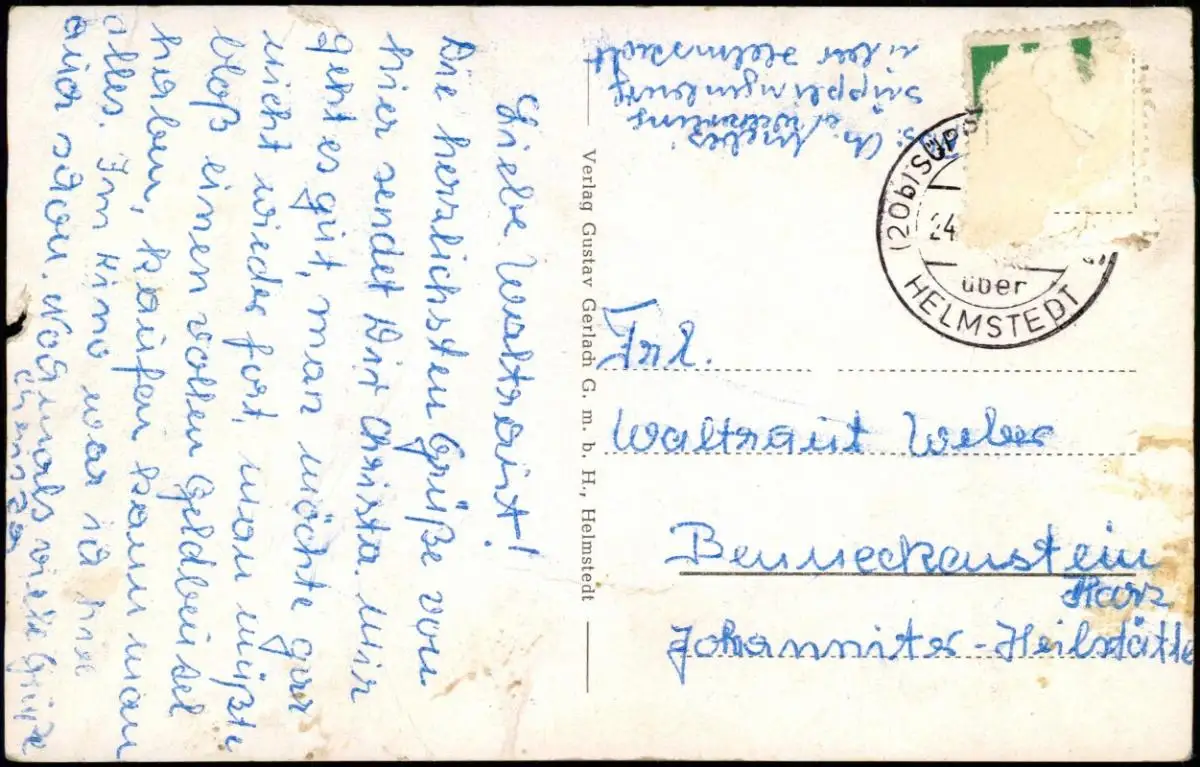 Liebe Waltraut!
Die herrlichsten Grüße von
hier sendet Dir Christa. Mir
geht es gut, man möchte gar
nicht wieder fort. man müßte
bloß einen vollen Geldbeutel
haben, kaufen kann man
alles. Im Kino war ich hier
auch schon. Nochmals viele Grüße
Christa
Verlag Gustav Gerlach G. m. b. H., Helmstedt
Süpplingenburg
über Helmstedt
(20b) SÜPP
24.
über
HELMSTEDT
Frl.
Waltraut Weber
Benneckenstein
Harz
Johanniter-Heilstätte